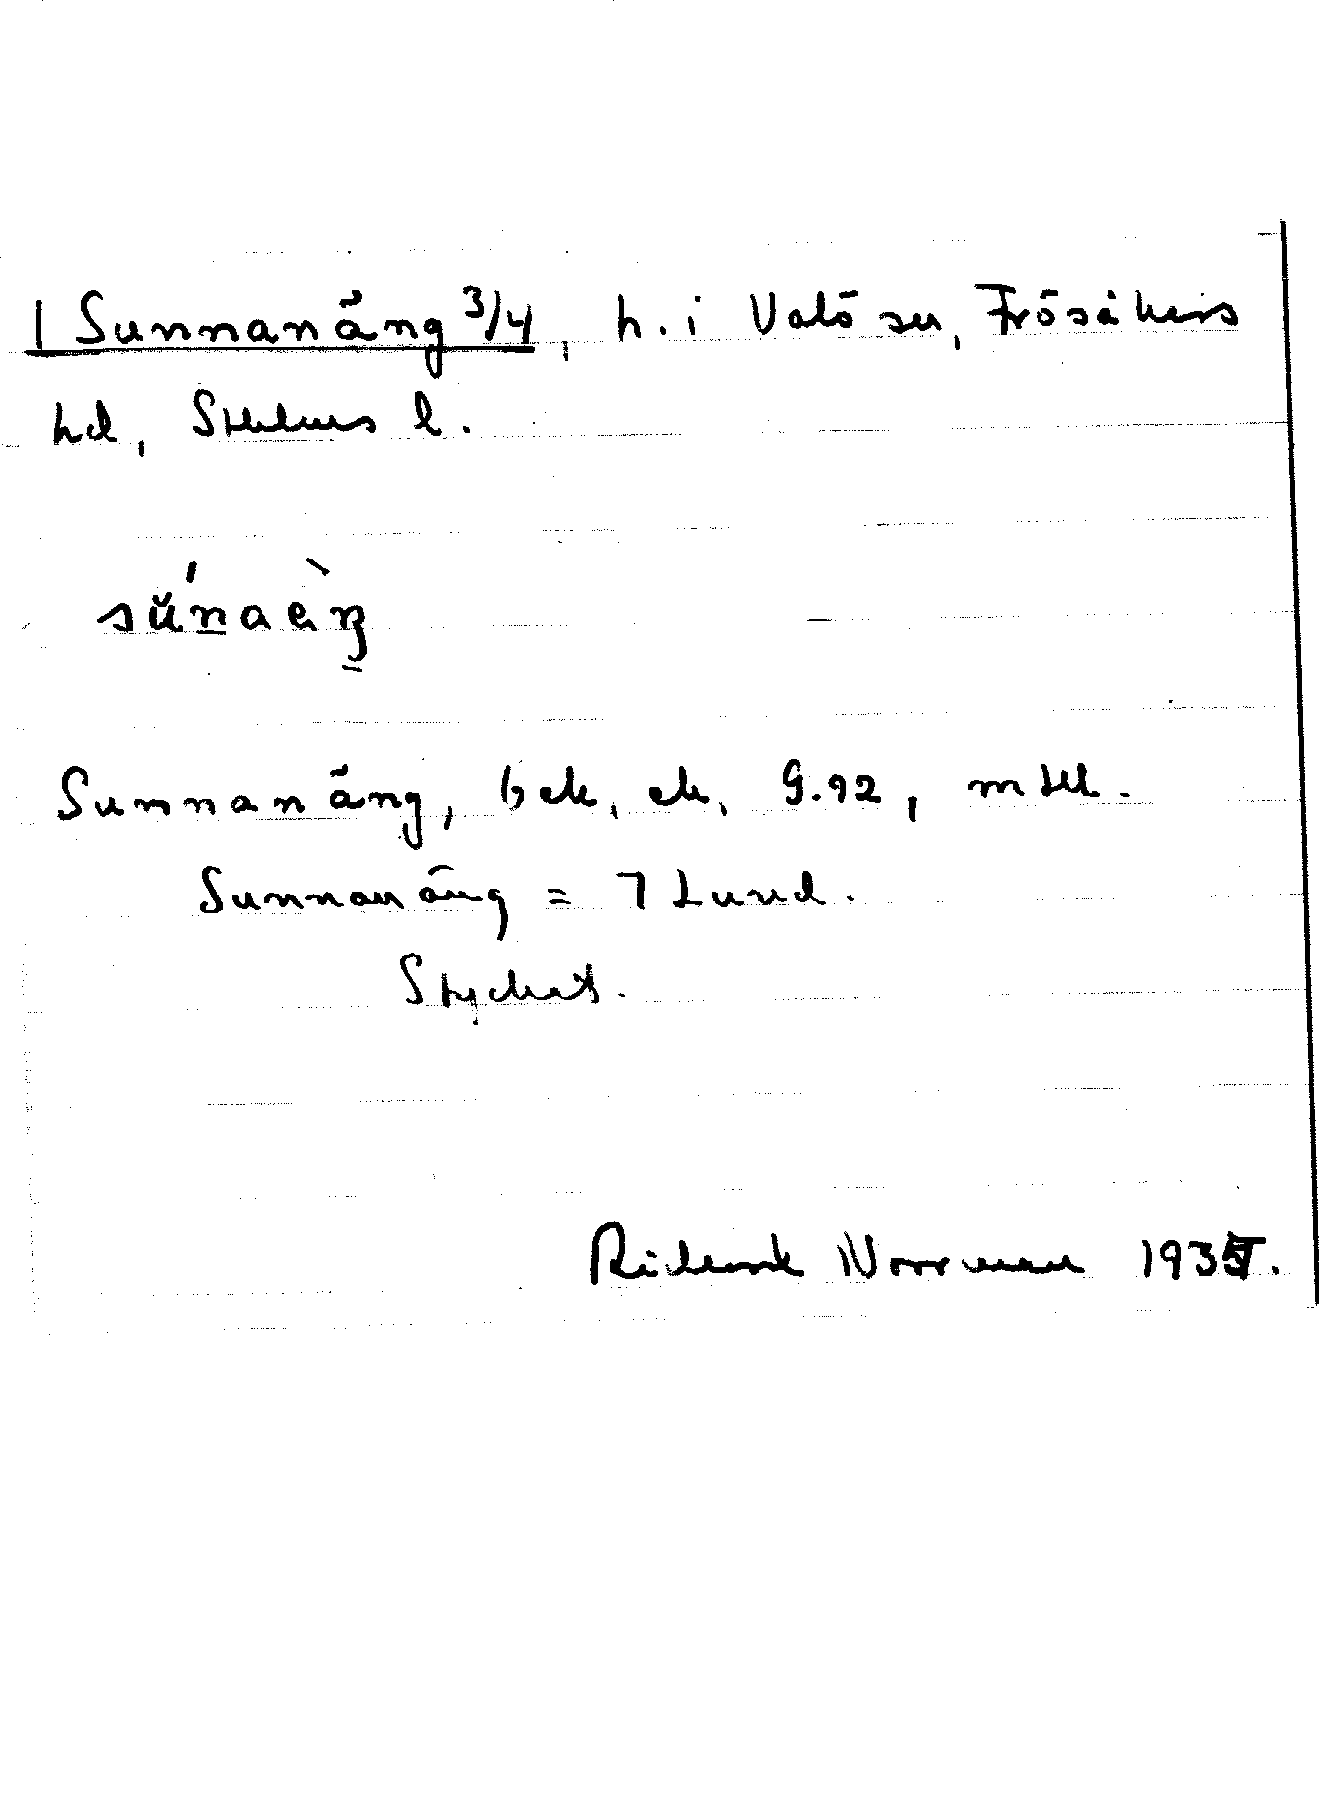 1 Sunnanäng 3/4, h. i Valö sn, Frösåkers
hd, Sthlms l.
sŭ́naèŋ
Sunnanäng, bek, ek, G.92, mtll.
Sunnanäng = 7 Lund.
Stycket.
Rickard Norrman 1935.